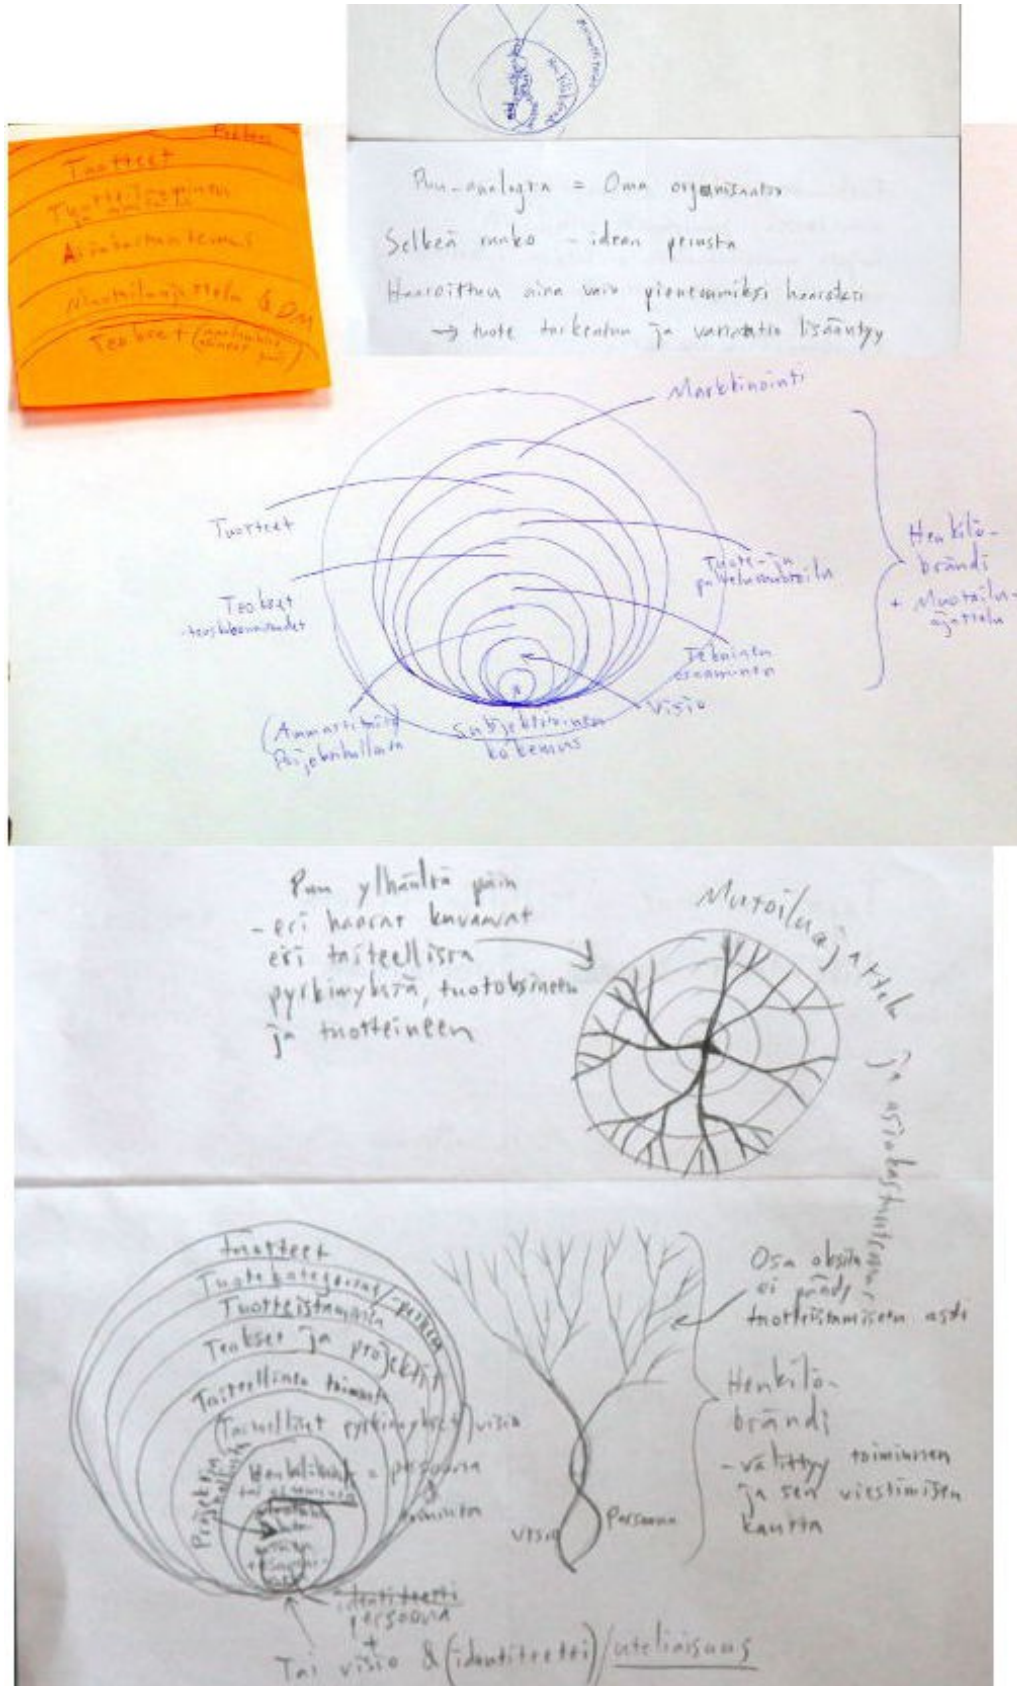 Tuotteet
Asiakastuntemus
Muotoiluajattelu & DM
Teokset
Puu-analogia = Oma organisaatio
Selkeä runko - idean perusta
Haaroittuu aina vain pienemmiksi haaroiksi
→ tuote tarkentuu ja variaatio lisääntyy
Markkinointi
Tuotteet
Tuote- ja
palvelumuotoilu
Teokset
-teoskokonaisuudet
Tekninen
osaaminen
Visio
(Ammattimainen)
Projektinhallinta
Subjektiivinen
kokemus
Henkilö-
brändi
+ Muotoilu-
ajattelu
Puu ylhäältä päin
- eri haarat kuvaavat
eri taiteellisia
pyrkimyksiä, tuotoksineen
ja tuotteineen
Mutoiluajattelu ja asiakastuntemus
Tuotteet
Tuotekategoriat/-perheet
Tuotteistaminen
Teokset ja projektit
Taiteellinen toiminta
(Taiteelliset pyrkimykset) visio
Henkilöbrändi = persoona
ja
toiminta
Projektinhallinta
identiteetti
persoona
+
Tai visio & (identiteetti)/uteliaisuus
visio
Persoona
Osa oksista
ei päädy
tuotteistamiseen asti
Henkilö-
brändi
- välittyy toiminnan
ja sen viestimisen
kautta